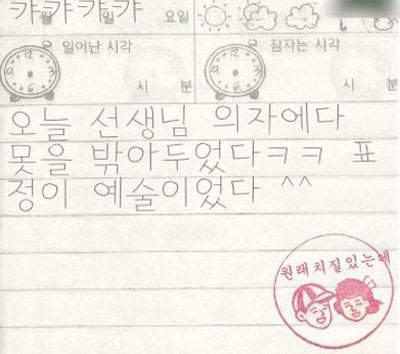 캬캬캬캬 요일
일어난 시각 잠자는 시각
시 분 시 분
오늘 선생님 의자에다
못을 밖아두었다ㅋㅋ 표
정이 예술이었다 ^^
원래치질있는데